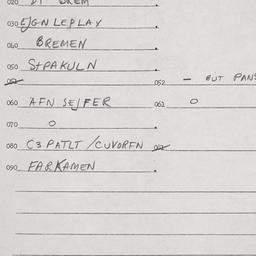 020 DT BREM
030 EJGNLEPLAY
040 BREMEN
050 StPAKULN
052 - BUT PANS
060 AFN SEJFER 061 O
070 O
080 C3 PATLT / CUVORFN
090 FARKAMEN